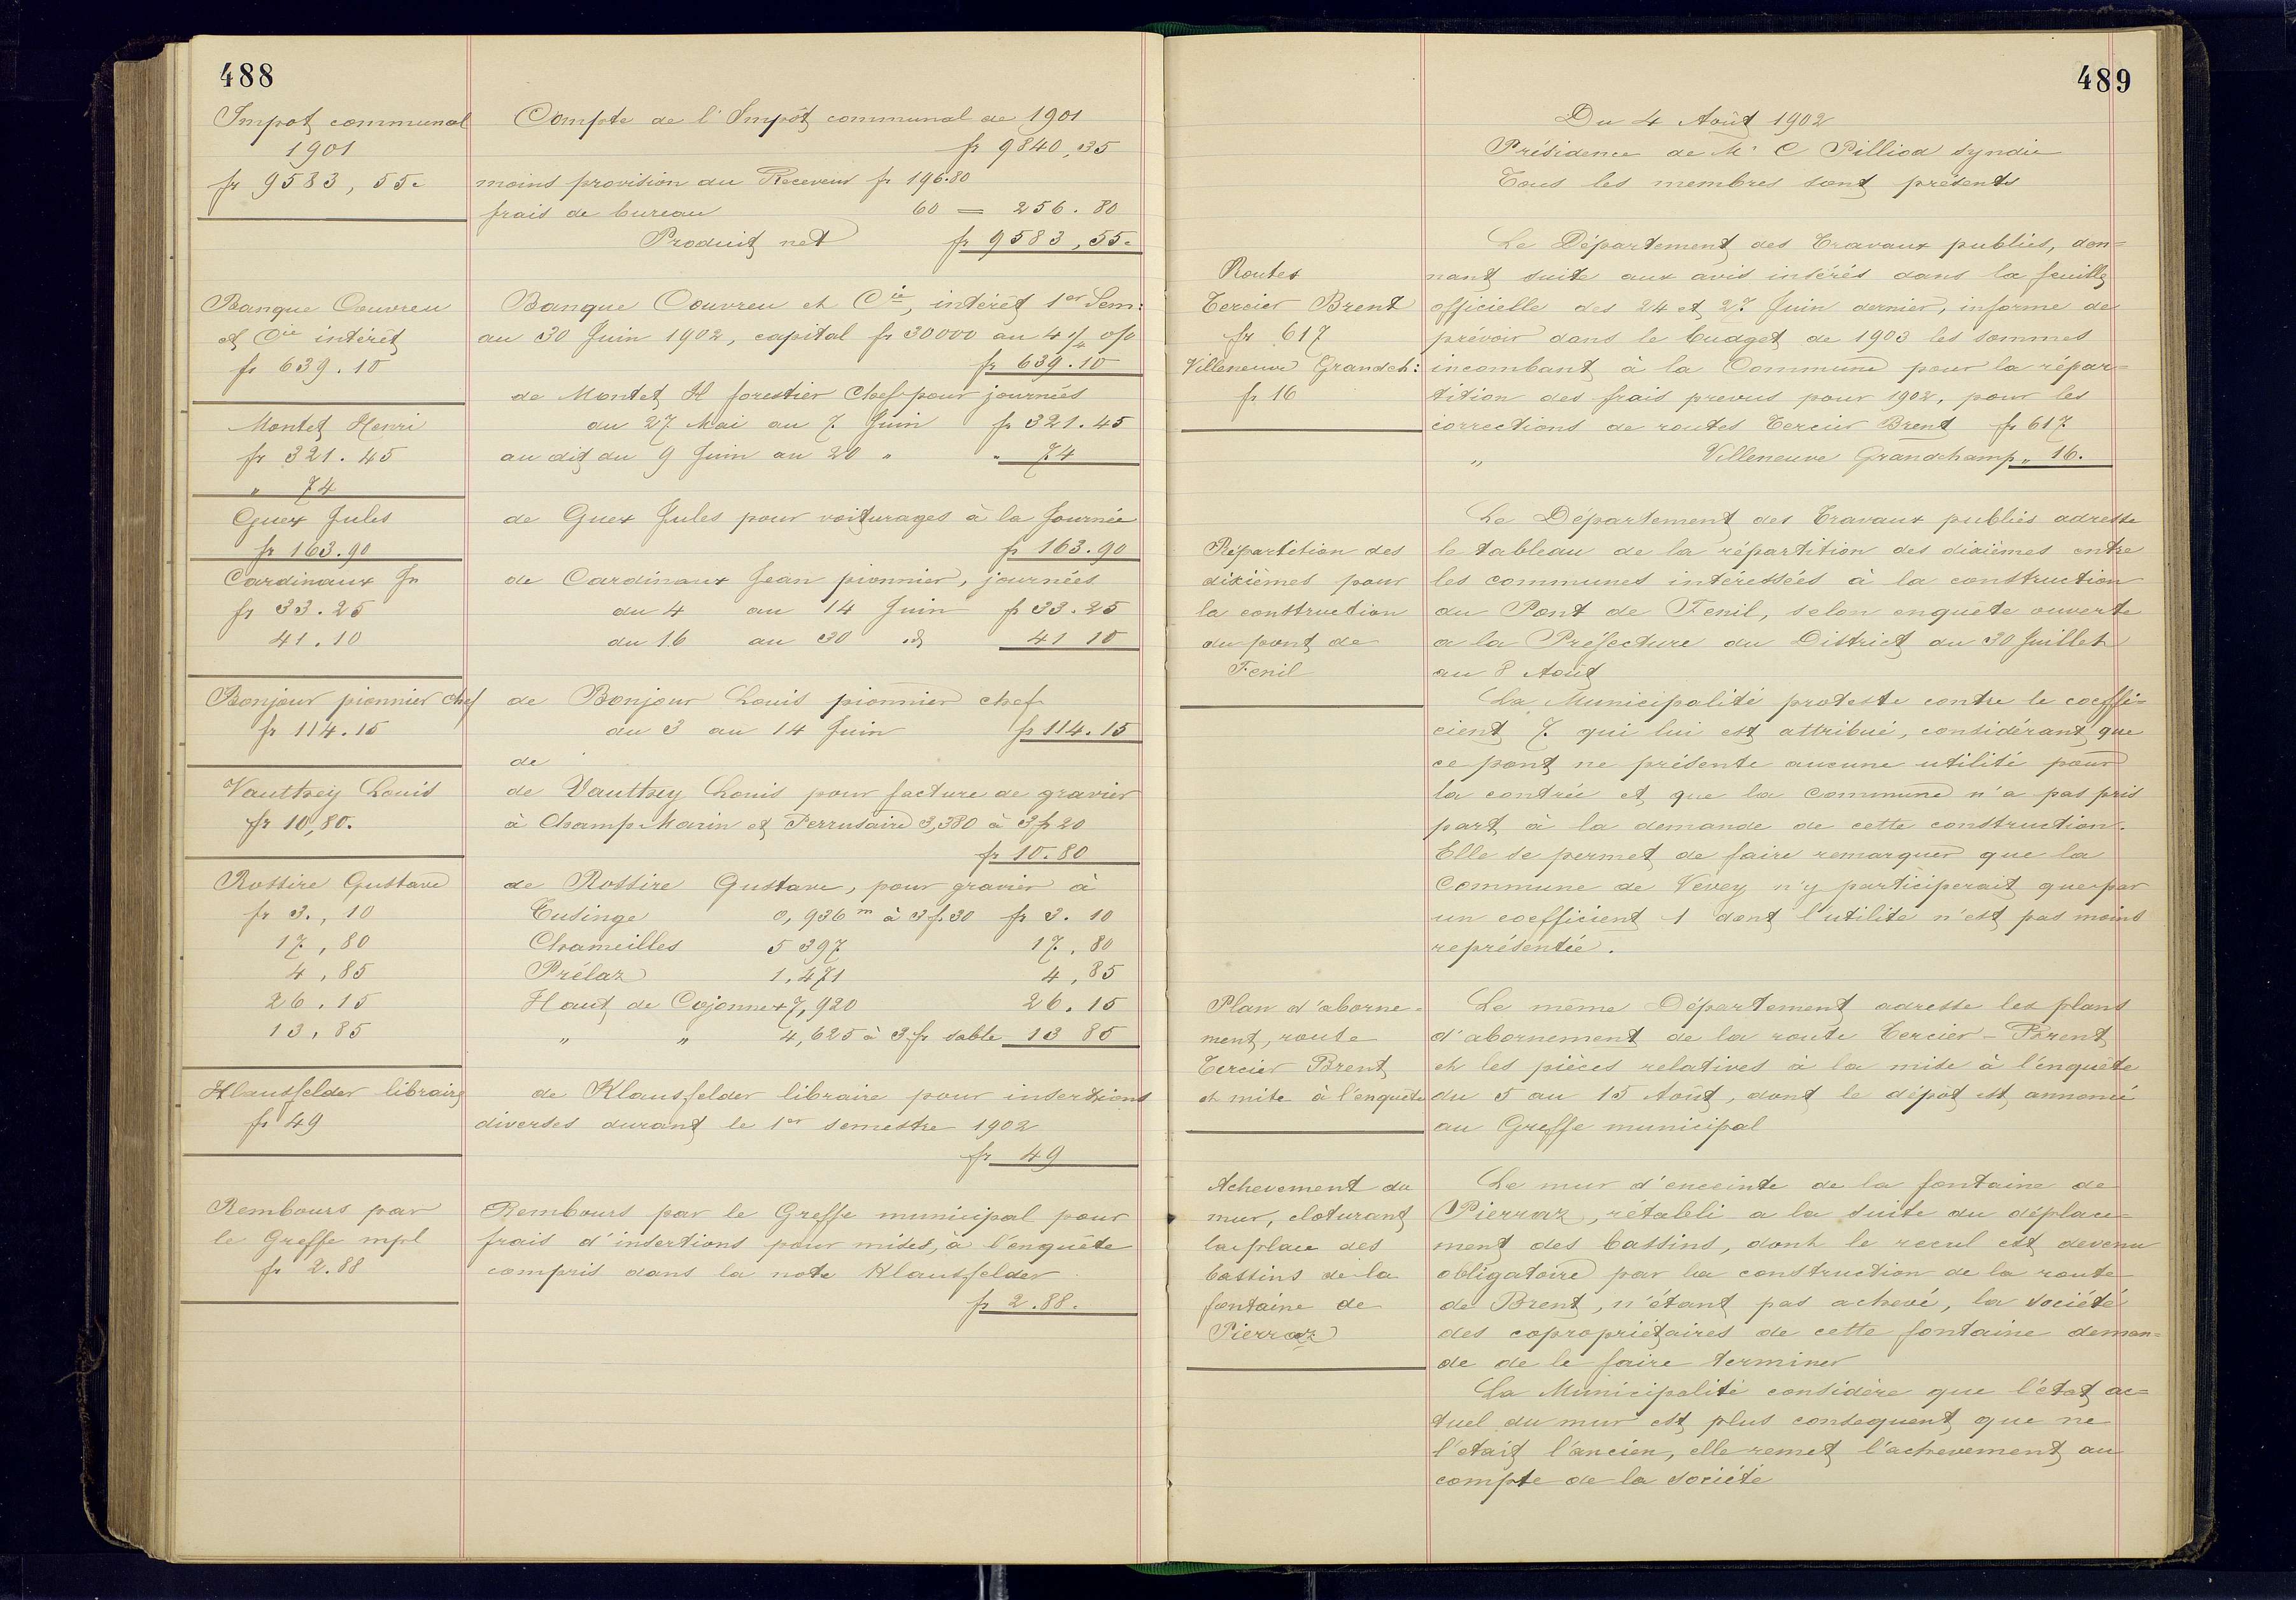 488
Impot communal
1901
fr 9583,55.
Compte de l'Impôt communal de 1901
fr 9840,35
moins provision du Receveur fr 196.80
frais de bureau 60 = 256.80
Produit net fr 9583,55.
Banque Couvreu
et Cie intérêt
fr 639.10
Banque Couvreu et Cie, intérêt 1er Sem:
au 30 Juin 1902, capital fr 30000 au 4 1/4 o/o
fr 639.10
Montet Henri
fr 321.45
" 74
de Montet H forestier Chef pour journées
du 27 Mai au 7 Juin fr 321.45
au dit du 9 Juin au 20 " " 74
Guex Jules
fr 163.90
de Guex Jules pour voiturages à la Journée
fr 163.90
Cardinaux Jn
fr 33.25
41.10
de Cardinaux Jean pionnier, journées
du 4 au 14 Juin fr 33.25
du 16 au 30 " 41 10
Bonjour pionnier chef
fr 114.15
de Bonjour Louis pionnier chef
du 3 au 14 Juin fr 114.15
de
Vauthey Louis
fr 10,80.
de Vauthey Louis pour facture de gravier
à Champ Marin et Perrusaire 3,380 à 3 fr 20
fr 10.80
Rossire Gustave
fr 3., 10
17,80
4,85
26.15
13,85
de Rossire Gustave, pour gravier à
Tusinge 0,936 m à 3 fr 30 fr 3.10
Chameilles 5 397 17,80
Prélaz 1.471 4,85
Haut de Cojonnex 7,920 26.15
" " 4,625 à 3 fr sable 13 85
Klausfelder libraire
fr 49
de Klausfelder libraire pour insertions
diverses durant le 1er semestre 1902
fr 49
Rembours par
le Greffe mpl
fr 2.88
Rembours par le Greffe municipal pour
frais d'insertions pour mises, à l'enquête
compris dans la note Klausfelder
fr 2.88.
489
Du 4 Août 1902
Présidence de Mr C Pilliod syndic
Tous les membres sont présents
Routes
Tercier Brent
fr 617
Villeneuve Grandch:
fr 16
Le Département des Travaux publics, don=
nant suite aux avis insérés dans la feuille
officielle des 24 et 27 Juin dernier, informe de
prévoir dans le budget de 1903 les sommes
incombant à la Commune pour la répar=
tition des frais prevus pour 1902, pour les
corrections de routes Tercier Brent fr 617
" Villeneuve Grandchamp " 16.
Répartition des
dixièmes pour
la construction
du pont de
Fenil
Le Département des Travaux publics adresse
le tableau de la répartition des dixièmes entre
les communes intéressées à la construction
du Pont de Fenil, selon enquête ouverte
a la Préfecture du District du 30 Juillet
au 8 Août
La Municipalité proteste contre le coeffi=
cient 7. qui lui est attribué, considérant que
ce pont ne présente aucune utilité pour
la contrée et que la Commune n'a pas pris
part à la demande de cette construction.
Elle se permet de faire remarquer que la
Commune de Vevey n'y participerait que par
un coefficient 1 dont l'utilité n'est pas moins
représentée.
Plan d'aborne=
ment, route
Tercier Brent
et mise à l'enquête
Le même Département adresse les plans
d'abornement de la route Tercier-Brent
et les pièces relatives à la mise à l'enquête
du 5 au 15 Août, dont le dépôt est annoncé
au Greffe municipal
Achevement du
mur, cloturant
la place des
bassins de la
fontaine de
Pierraz
Le mur d'enceinte de la fontaine de
Pierraz, rétabli a la suite du déplace=
ment des bassins, dont le recul est devenu
obligatoire par la construction de la route
de Brent, n'étant pas achevé, la société
des copropriétaires de cette fontaine deman=
de de le faire terminer
La Municipalité considère que l'état ac=
tuel du mur est plus consequent que ne
l'etait l'ancien, elle remet l'achevement au
compte de la société